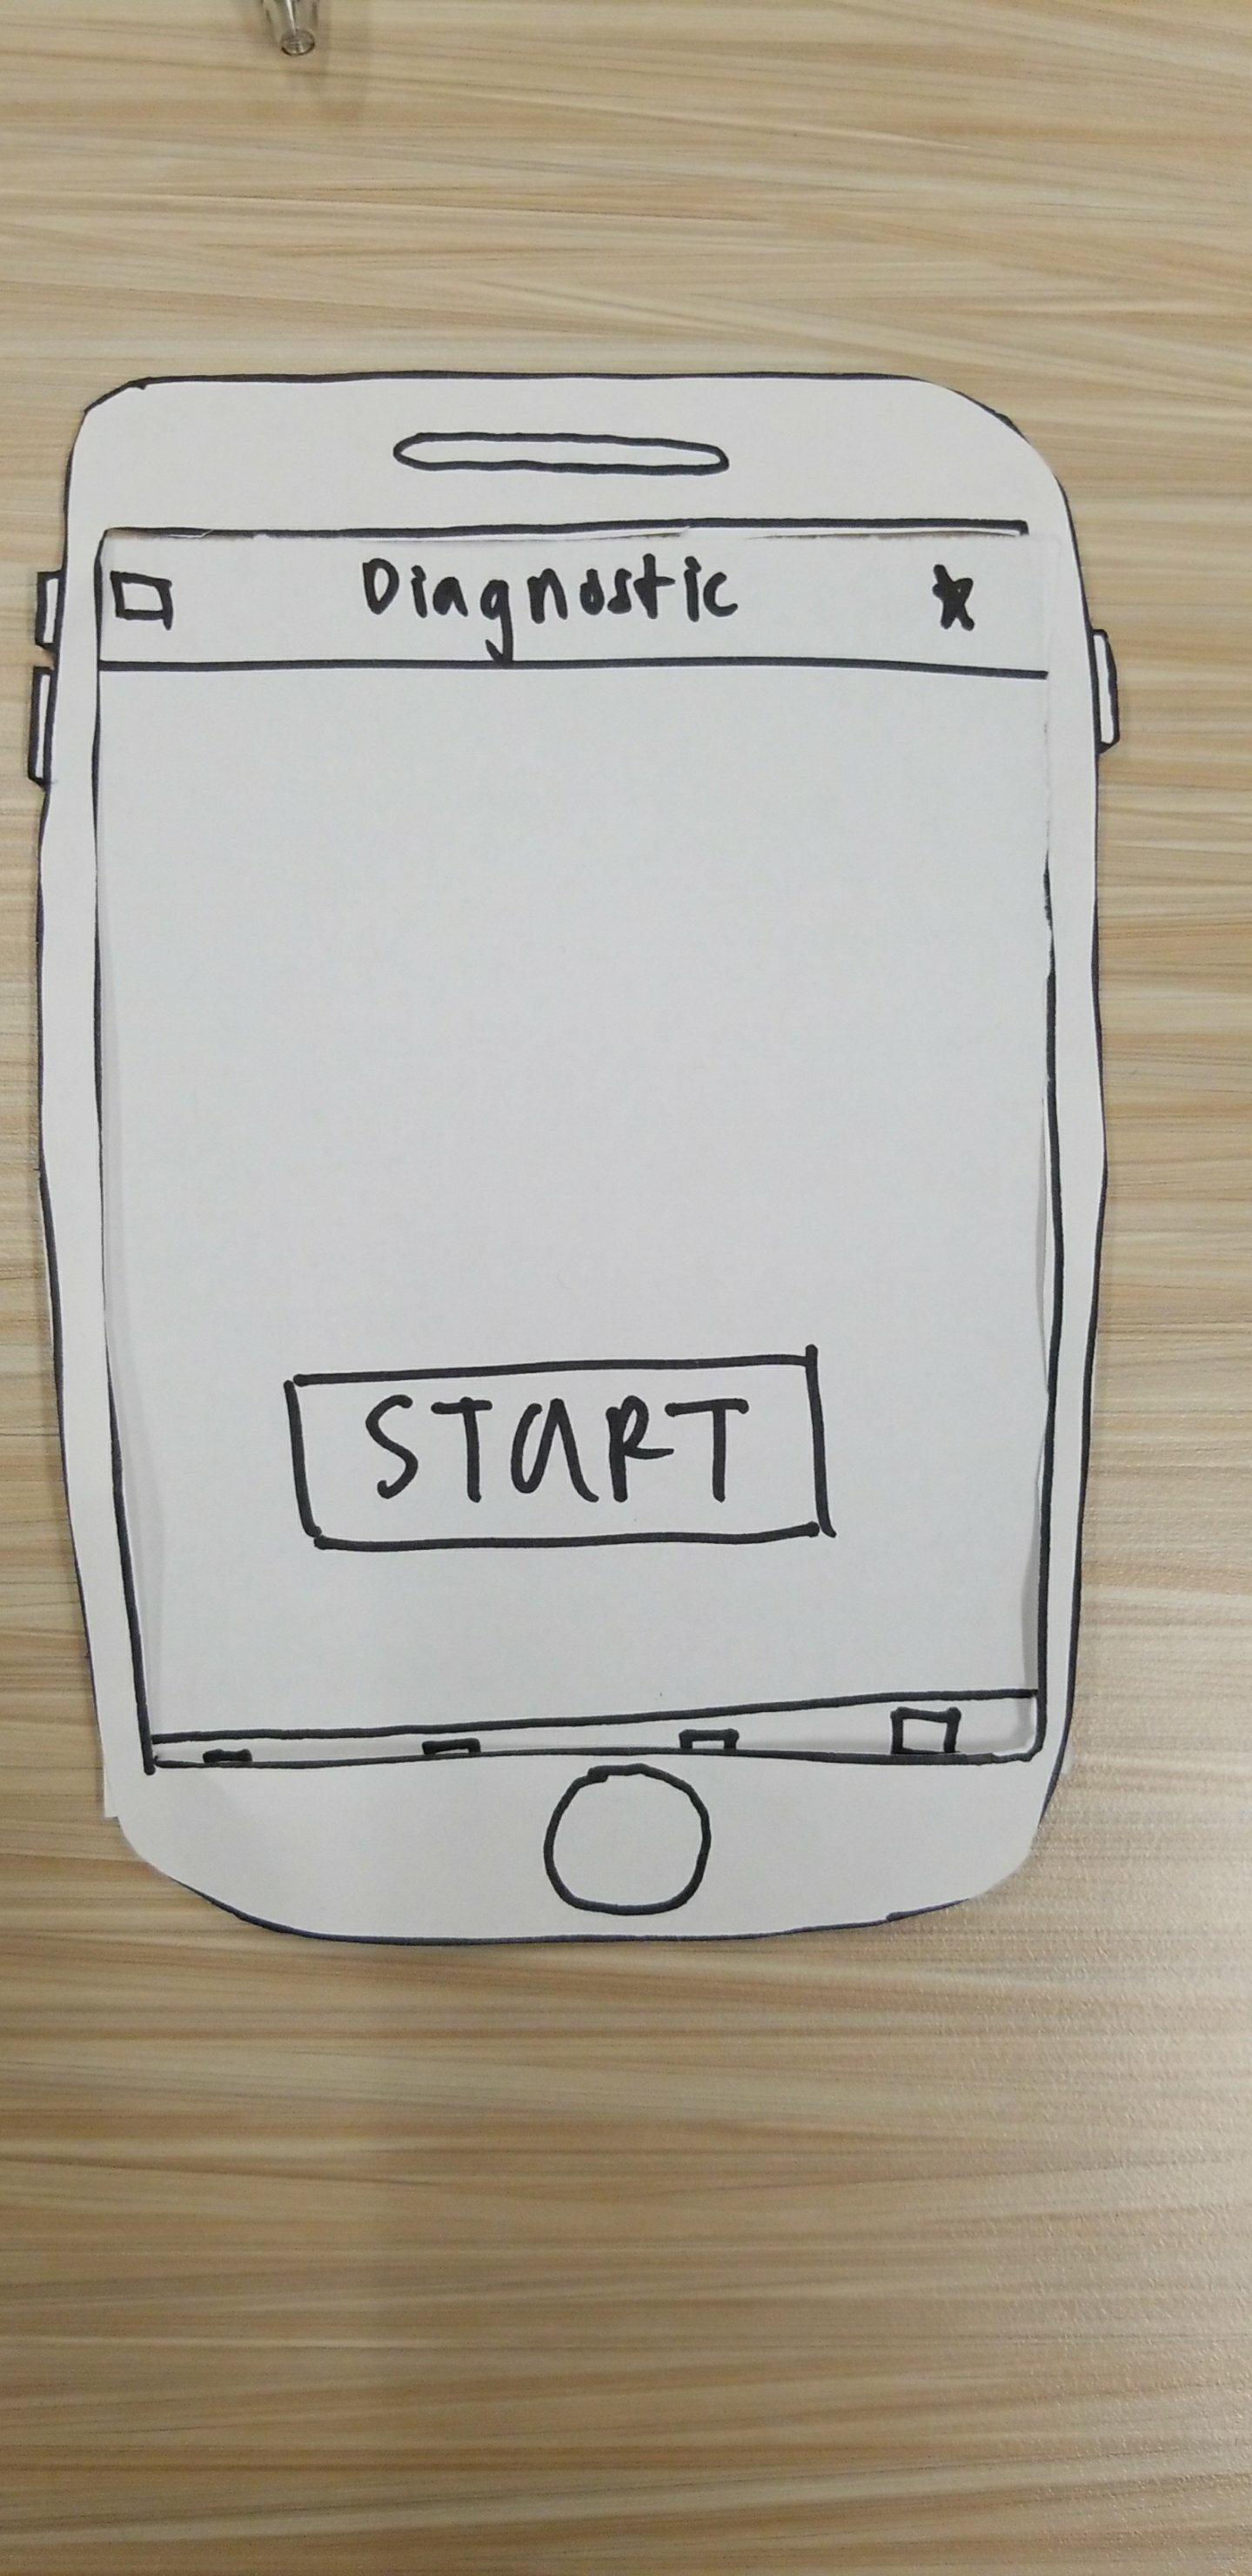 Diagnostic
START